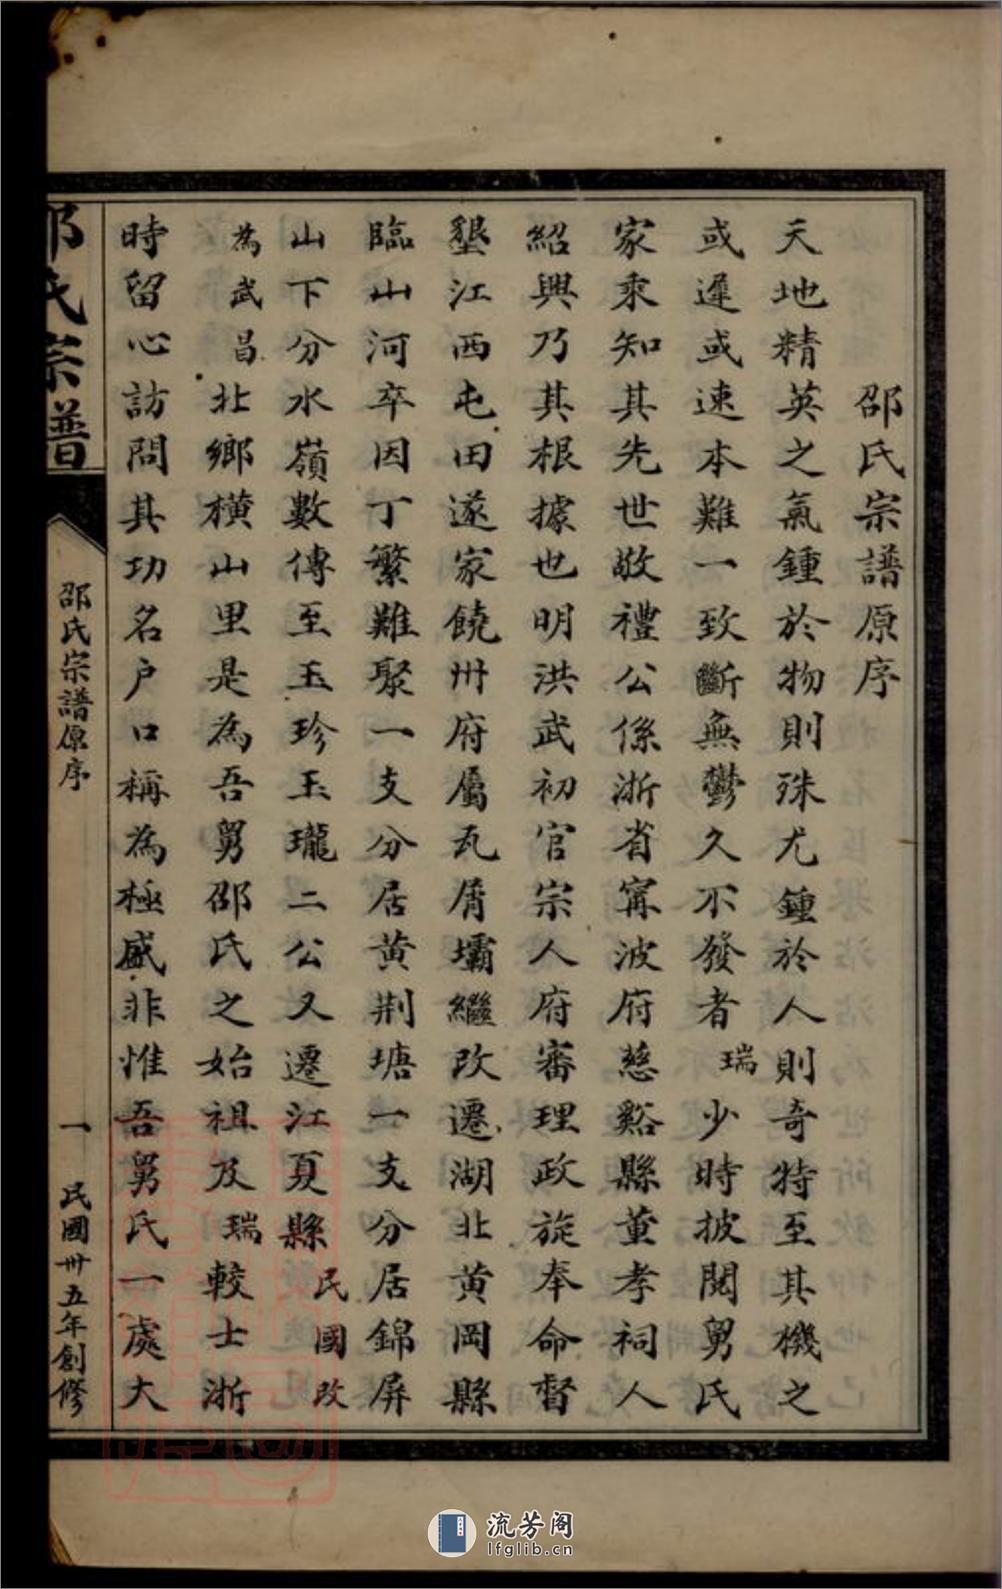 邵氏宗譜原序
天地精英之氣鍾於物則殊尤鍾於人則奇特至其機之
或遲或速本難一致斷無鬱久不發者瑞少時披閱舅氏
家乘知其先世敬禮公係浙省甯波府慈谿縣董孝祠人
紹興乃其根據也明洪武初官宗人府審理政旋奉命督
墾江西屯田遂家饒州府屬瓦屑壩繼改遷湖北黃岡縣
臨山河卒因丁繁難聚一支分居黃荆塘一支分居錦屏
山下分水嶺數傳至玉珍玉瓏二公又遷江夏縣民國改
為武昌北鄉橫山里是為吾舅邵氏之始祖及瑞較士浙
時留心訪問其功名户口稱為極盛非惟吾舅氏一處大
邵氏宗譜
邵氏宗譜原序
一
民國卅五年創修
流芳阁
lfglib.cn